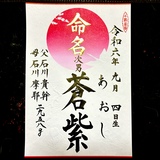 令和六年 九月 四日生
あおし
命名
次男
蒼紫
父 石川貴幹
母 石川摩耶